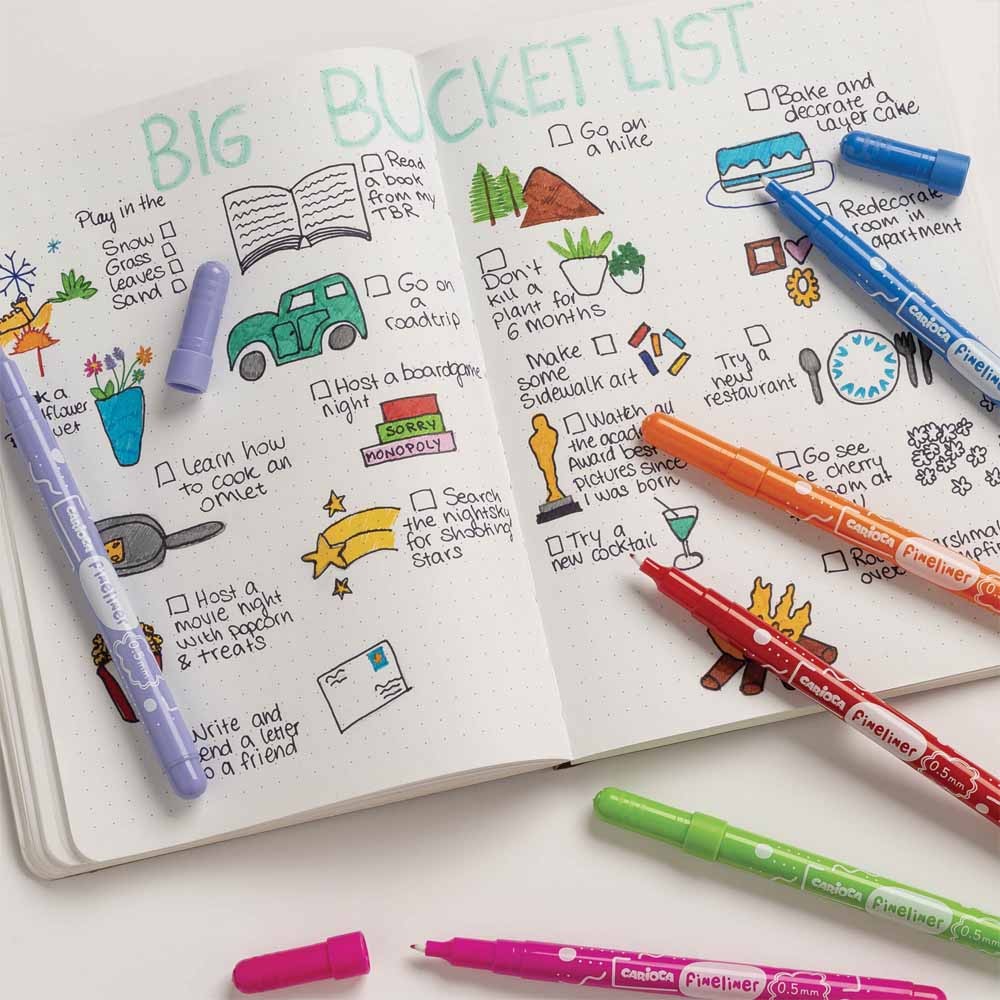 BIG BUCKET LIST
Play in the
Snow
Grass
leaves
Sand
Read
a book
from my
TBR
Go on
a
roadtrip
Host a boardgame
night
SORRY
MONOPOLY
Learn how
to cook an
omlet
Search
the nightsky
for shooting
stars
Host a
movie night
with popcorn
& treats
Write and
send a letter
to a friend
Go on
a hike
Bake and
decorate a
layer cake
Redecorate
room in
apartment
Don't
kill a
plant for
6 months
Make
some
Sidewalk art
Try a
new
restaurant
Watch all
the
Award best
pictures since
I was born
Go see
cherry
at
Try a
new cocktail
over
CARIOCA fineliner 0.5mm
CARIOCA
CARIOCA fineliner
CARIOCA fineliner 0.5mm
CARIOCA fineliner 0.5mm
CARIOCA fineliner 0.5mm